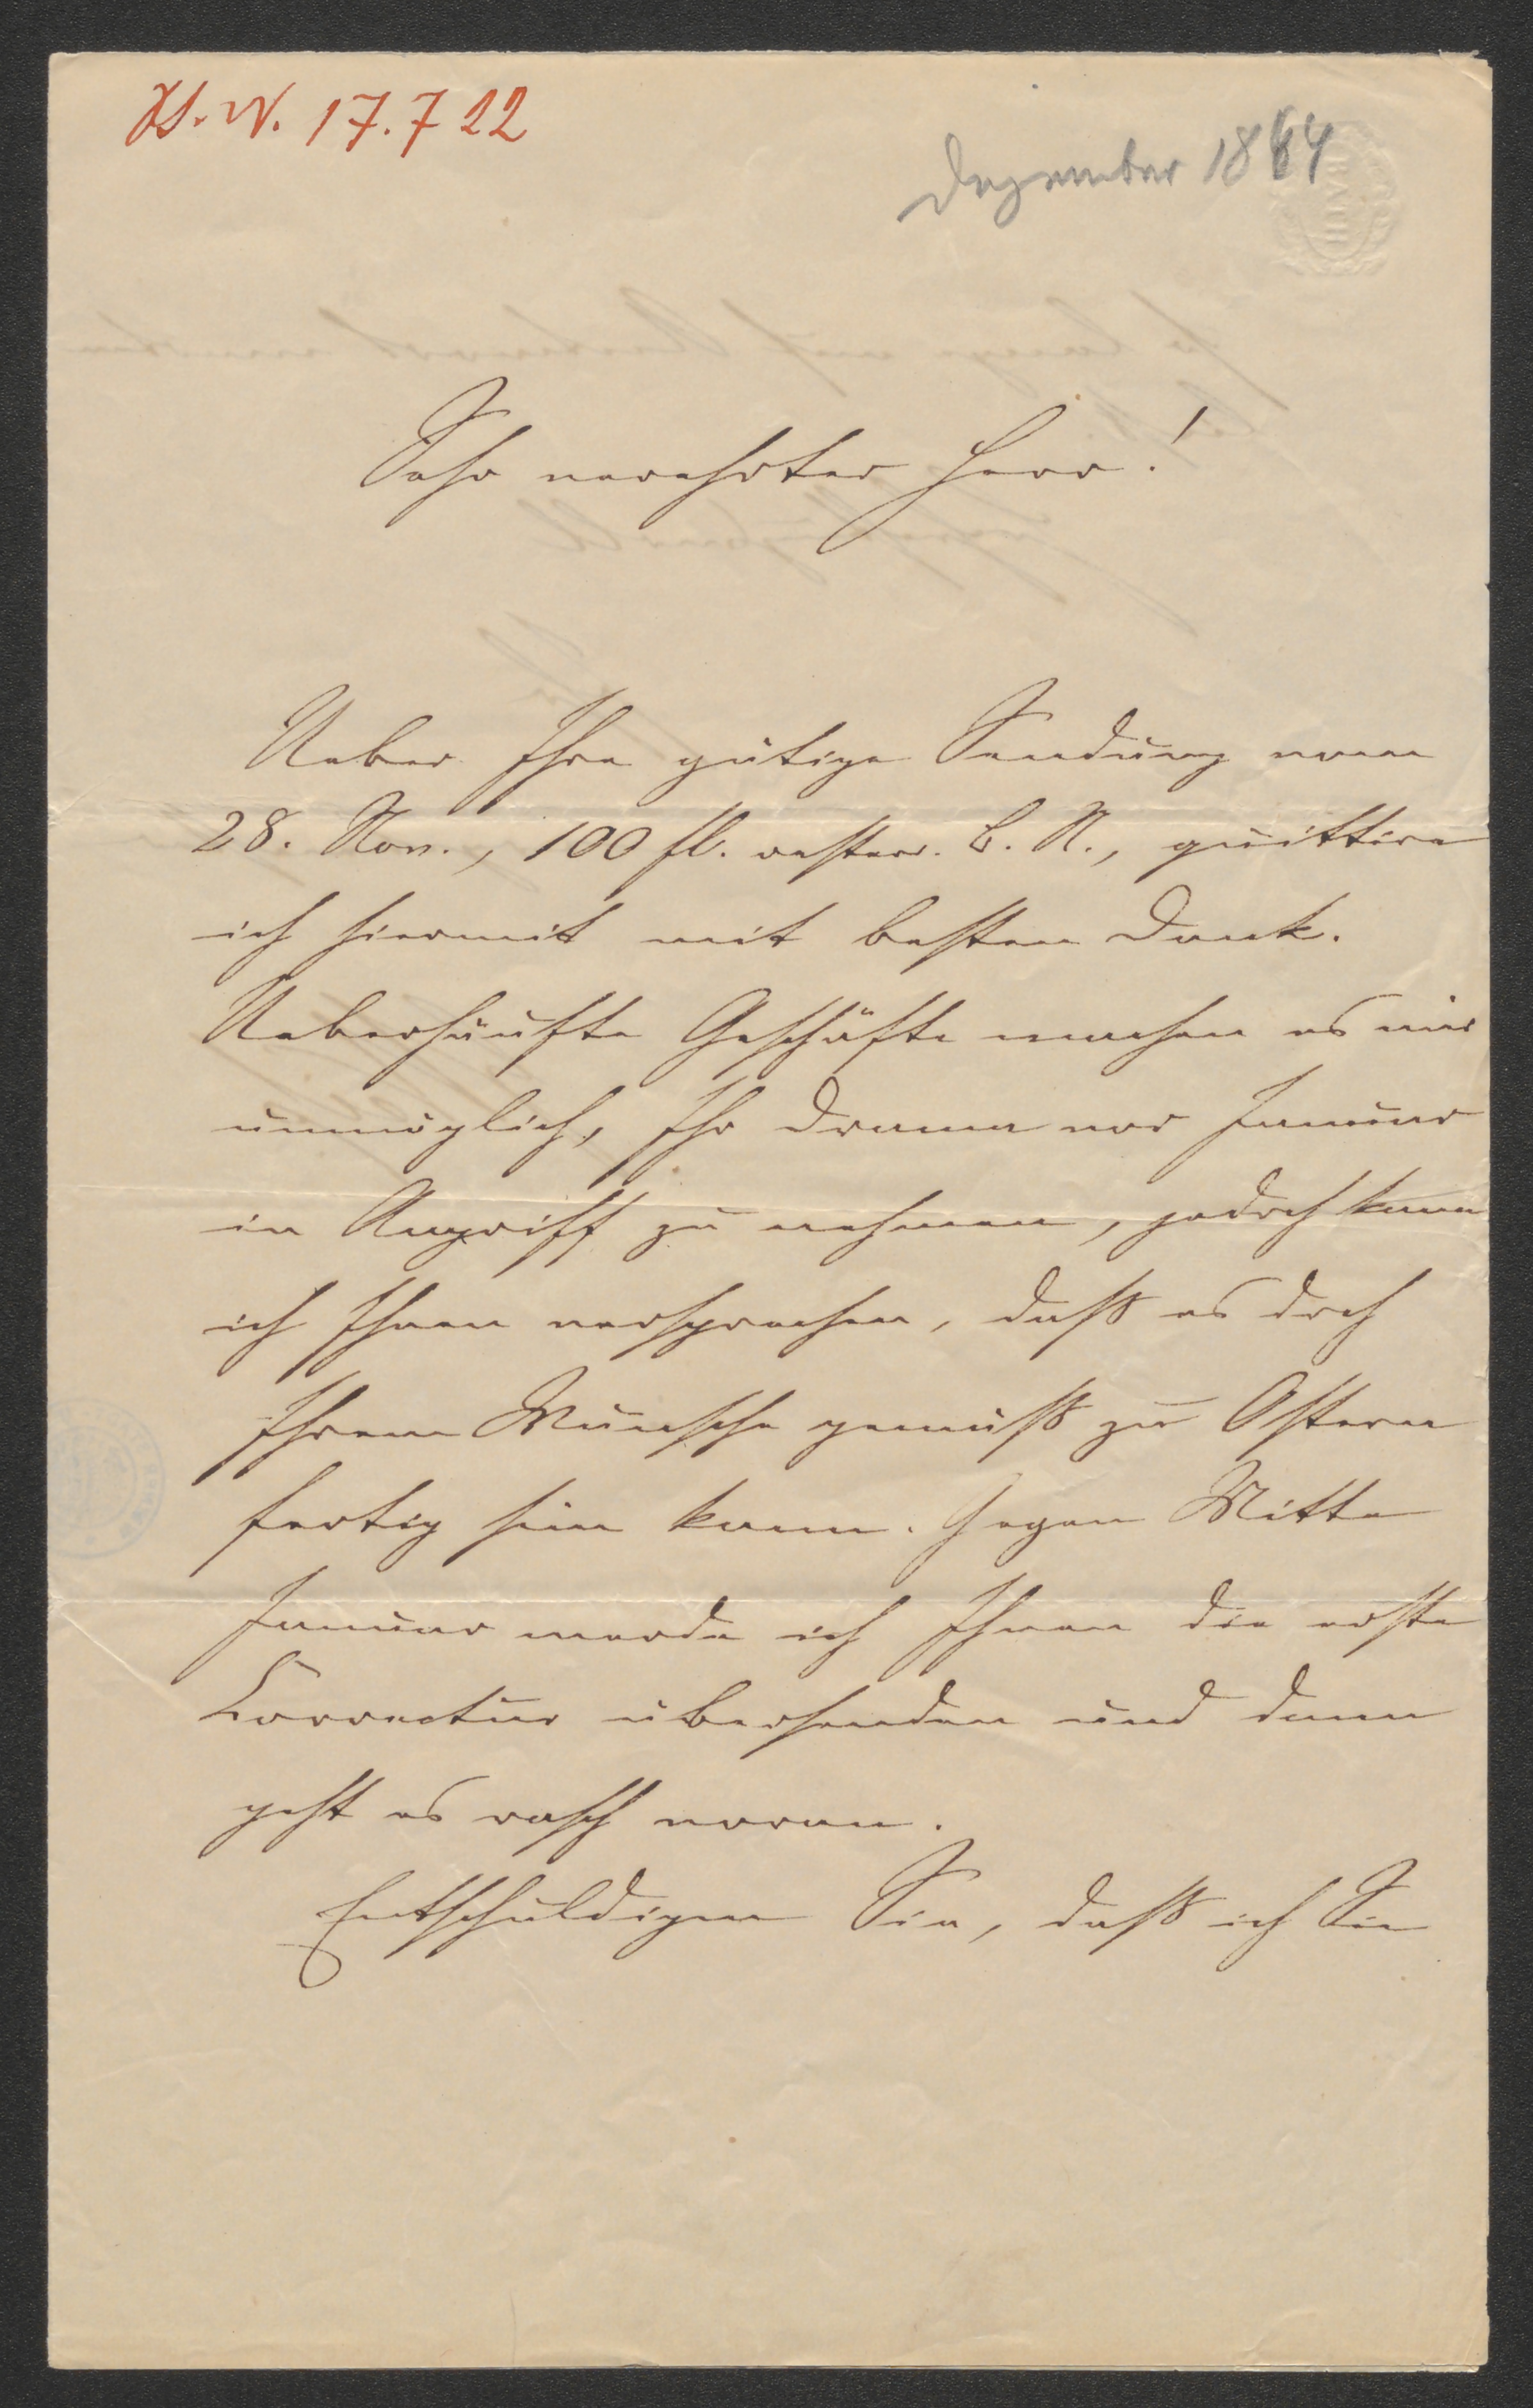 H. N. 17.7 22
Dezember 1864
Sehr verehrter Herr!
Ueber Ihre gütige Sendung vom
28. Nov., 100 fl. oesterr. B. N., quittire
ich hiermit mit besten Dank.
Ueberhäufte Geschäfte machen es mir
unmöglich, Ihr Drama vor Januar
in Angriff zu nehmen, jedoch kann
ich Ihnen versprechen, daß es doch
Ihrem Wunsche gemäß zu Ostern
fertig sein kann. Gegen Mitte
Januar werde ich Ihnen die erste
Correctur übersenden und dann
geht es rasch voran.
Entschuldigen Sie, daß ich Sie